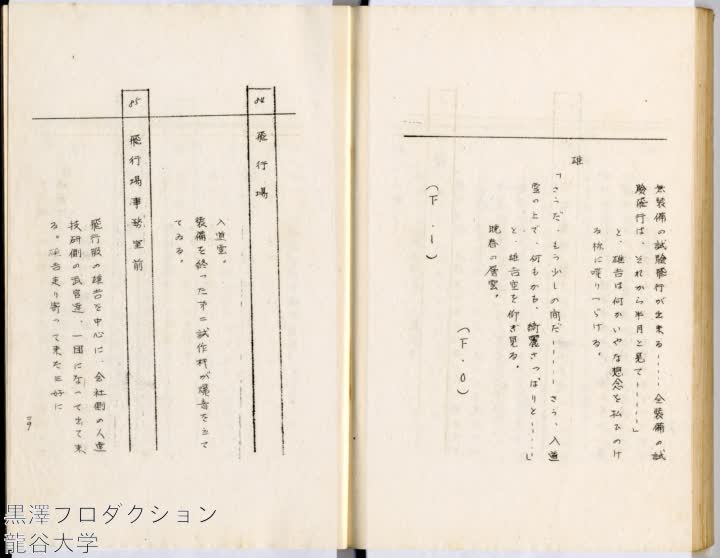 雄
無装備の試験飛行が出来る……全装備の試
験飛行は、それから半月と見て……」
と、雄吉は何かいやな想念を払ひのけ
る様に喋りつゞける。
「さうだ、もう少しの間だ……さう、入道
雲の上で、何もかも、綺麗さつぱりと……」
と、雄吉空を仰ぎ見る。
晩春の層雲。
(F・I)
(F・O)
84 飛行場
入道雲。
装備を終つた第二試作機が爆音を立て
てゐる。
85 飛行場事務室前
飛行服の雄吉を中心に、会社側の人達
技研側の武官達、一団になつて出て来
る。雄吉走り寄つて来た三好に
黒澤プロダクション
龍谷大学